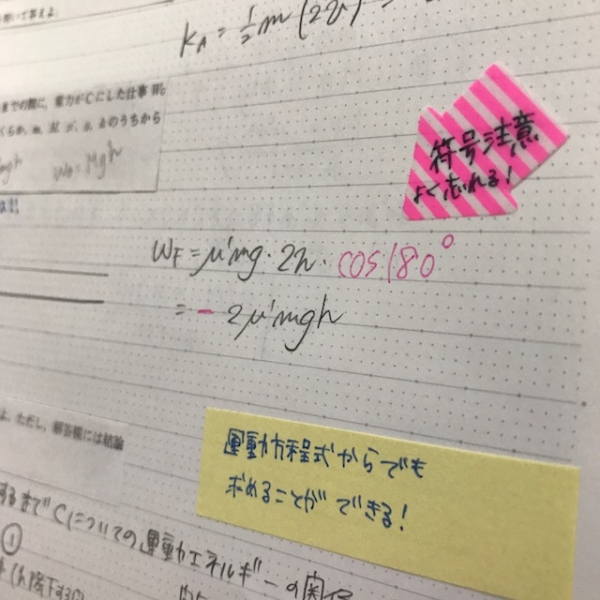 K_A = 1/2 m (2v)² =
までの間に、重力がCにした仕事 W_G
m, M, g, a, hのうちから
mgh W_G = Mgh
符号注意
よく忘れる!
W_F = μ'mg・2h・cos180°
= - 2μ'mgh
よ。ただし、解答欄には結論
運動方程式からでも
求めることができる!
するまでCについての運動エネルギーの関係
①